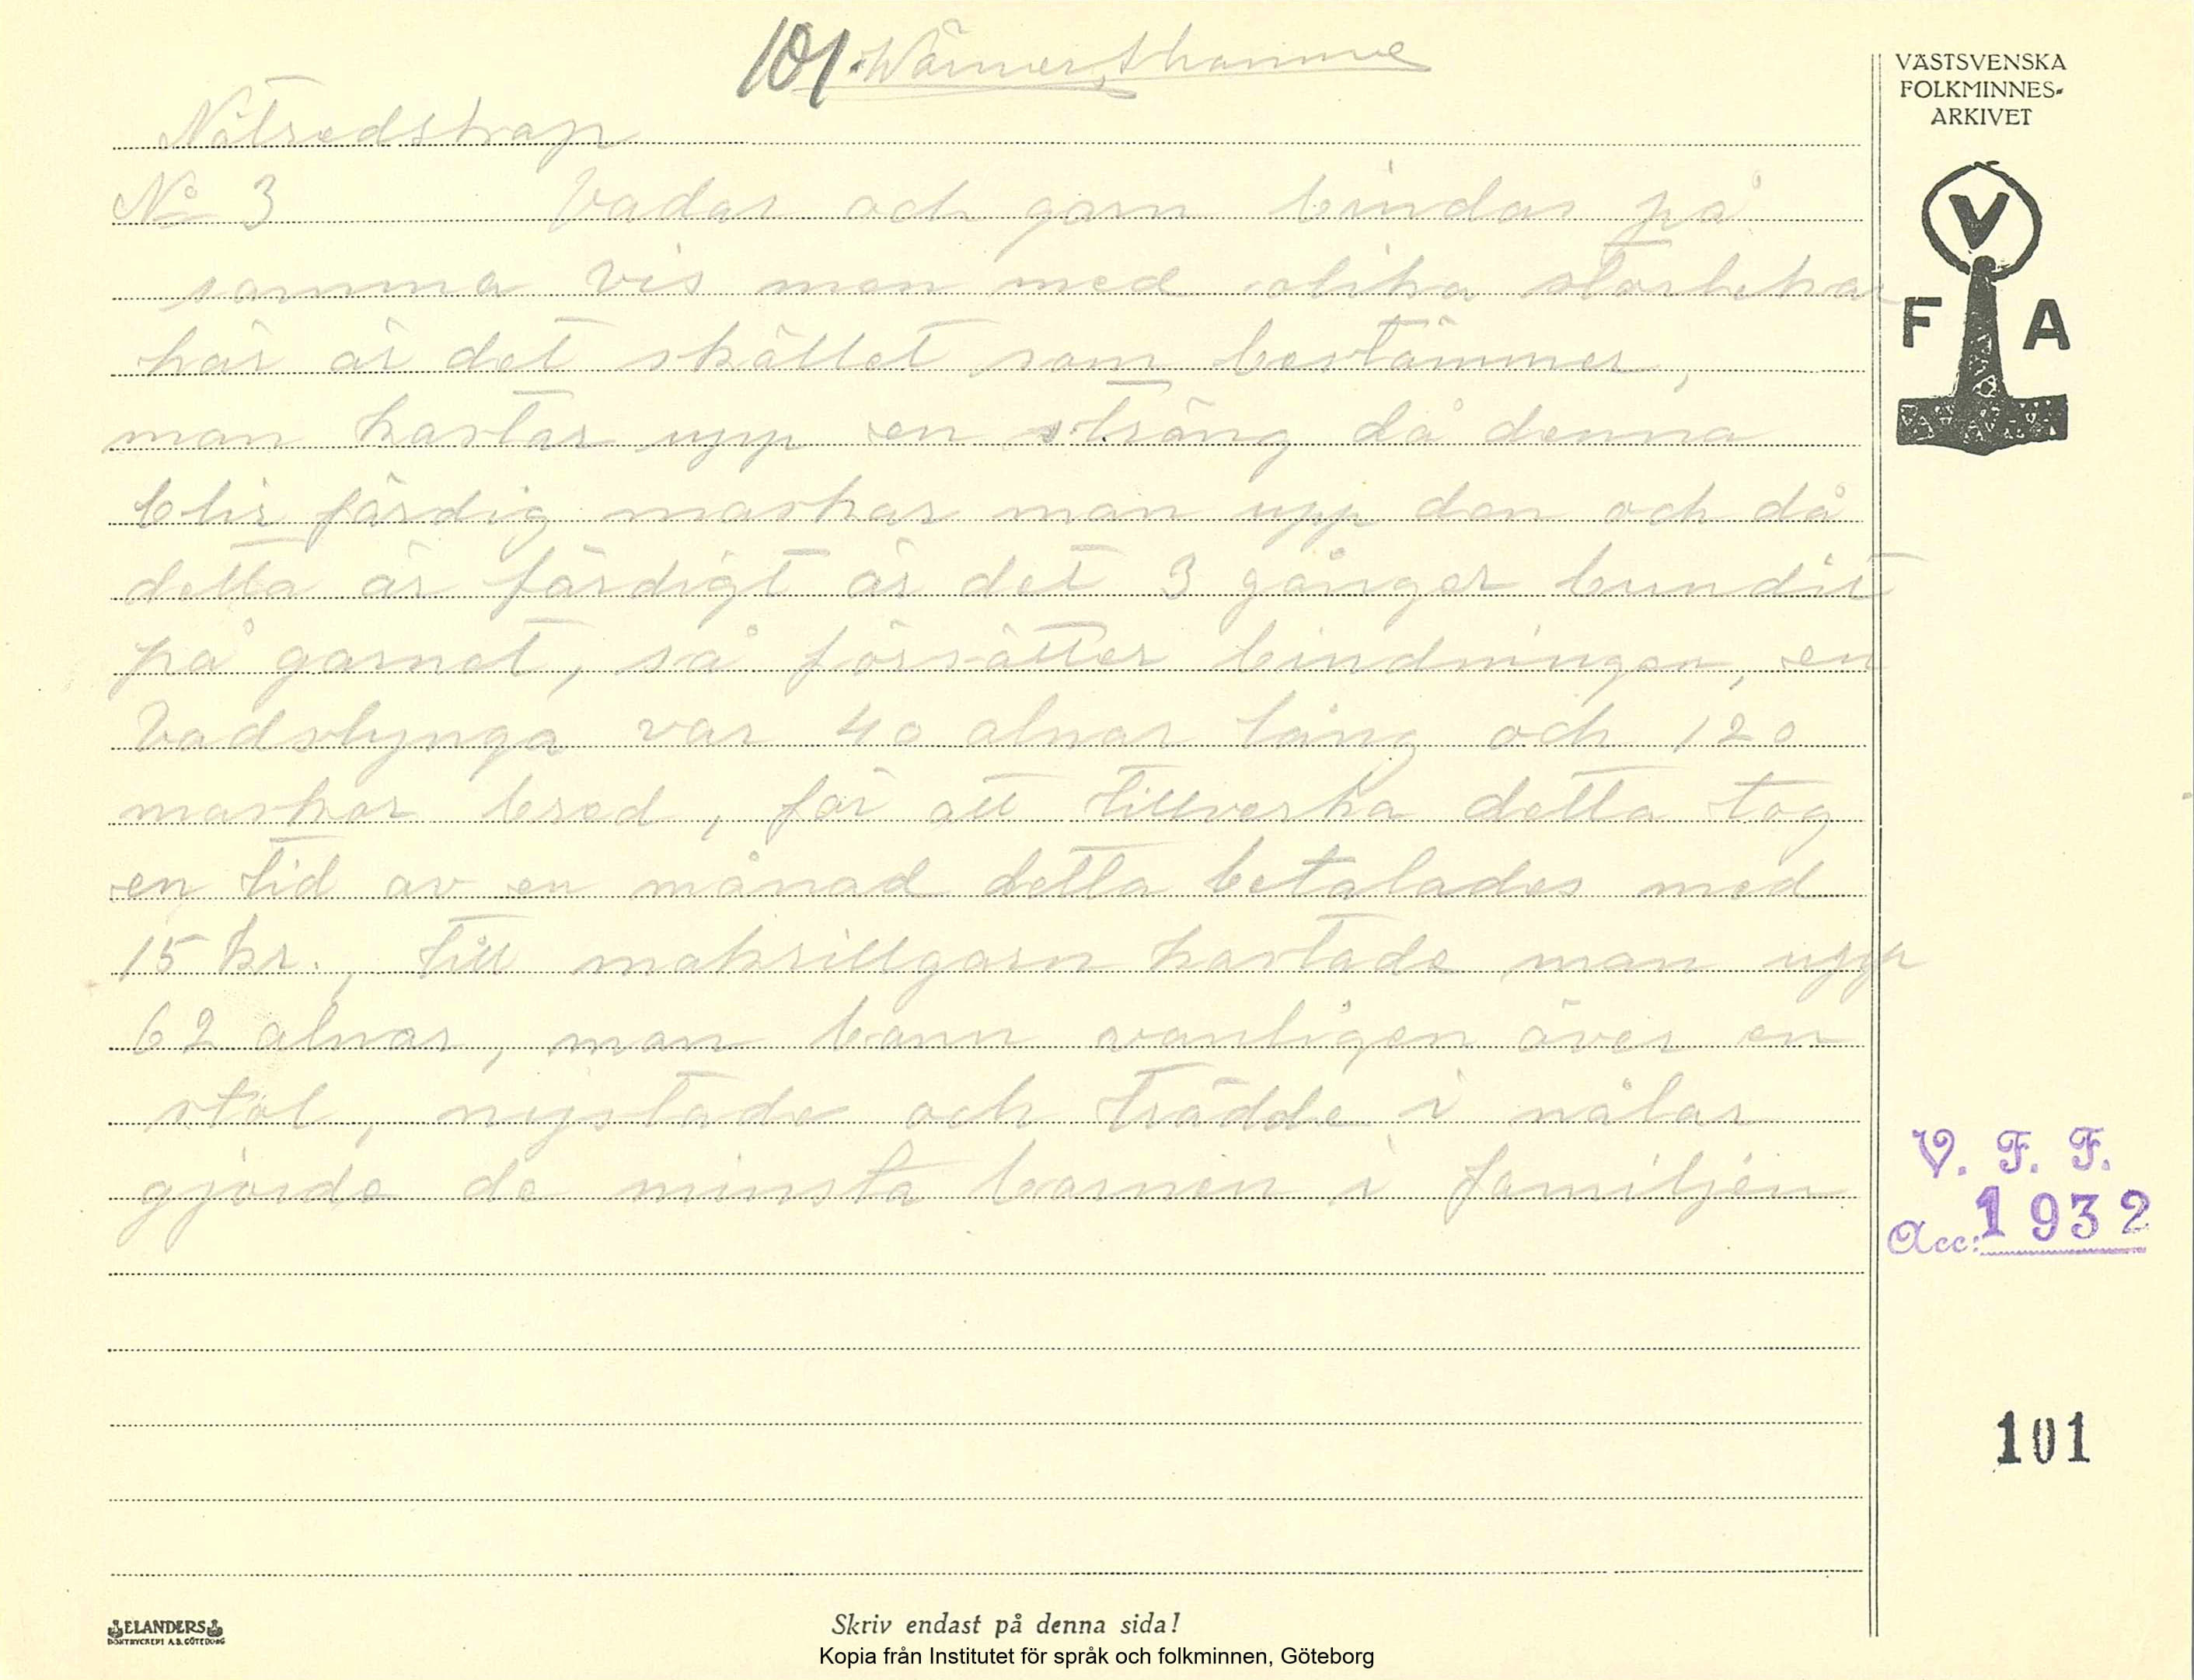 101. Wärner, Hamme
Nätredskap
No 3 Vadar och garn bindas på
samma vis men med olika storlekar
här är det skället som bestämmer,
man kastar upp en sträng då denna
blir färdig maskar man upp den och då
detta är färdigt är det 3 gånger bundit
på garnet, så försätter bindningen, en
Vadslynga var 40 alnar lång och 120
maskor bred, för att tillverka detta tog
en tid av en månad detta betalades med
15 kr., till makrillgarn kastade man upp
62 alnar, man bann vanligen över en
stol, nystade och trädde i nålar
gjorde de minsta barnen i familjen
VÄSTSVENSKA
FOLKMINNES-
ARKIVET
V
F A
V. F. F.
Acc: 1932
101
ELANDERS
BOKTRYCKERI A.B. GÖTEBORG
Skriv endast på denna sida!
Kopia från Institutet för språk och folkminnen, Göteborg